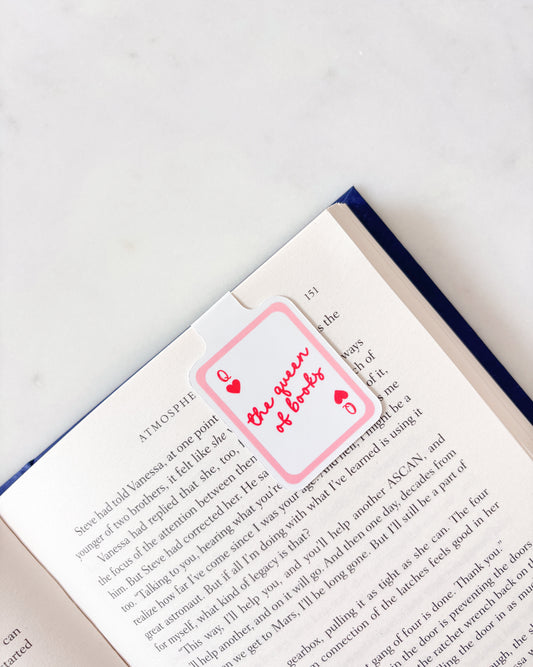 151
ATMOSPHE
Q
the queen
of books
Q
Steve had told Vanessa, at one point the
younger of two brothers, it felt like ways
Vanessa had replied that she, too, of
the focus of the attention between of it,
him. But Steve had corrected her. He me
too. “Talking to you, hearing what you’re
realize how far I’ve come since I was your age. And hell, I might be a
great astronaut. But if all I’m doing with what I’ve learned is using it
for myself, what kind of legacy is that?
This way, I’ll help you, and you’ll help another ASCAN, and
help another, and on it will go. And then one day, decades from
we get to Mars, I’ll be long gone. But I’ll still be a part of
gearbox, pulling it as tight as she can. The four
connection of the latches feels good in her
gang of four is done. Thank you.”
in the door is preventing the doors
the ratchet wrench back on
the door in as
can
started